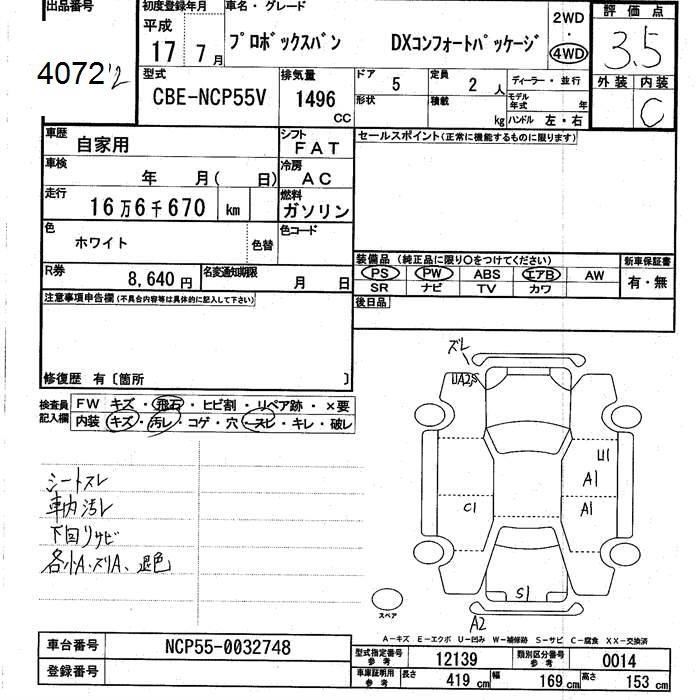 出品番号
4072 '2
初度登録年月
平成
17 年 7 月
車名・グレード
プロボックスバン DXコンフォートパッケージ
2WD
・
4WD
評価点
3.5
型式
CBE-NCP55V
排気量
1496
CC
ドア 5
定員 2 人
ディーラー・並行
形状
積載 kg
モデル年式 年
ハンドル 左・右
外装 内装
C
車歴
自家用
シフト
FAT
セールスポイント(正常に機能するものに限ります)
車検
年 月( 日)
冷房
AC
走行
16万6千670 km
燃料
ガソリン
色
ホワイト
色替
色コード
装備品 (純正品に限り○をつけてください)
新車保証書
PS PW ABS エアB AW
有・無
SR ナビ TV カワ
R券
8,640円
名変通知期限
月 日
後日品
注意事項申告欄(不具合内容等は具体的に記入して下さい)
修復歴 有〔箇所 〕
検査員記入欄
FW キズ・飛石・ヒビ割・リペア跡・×要
内装 キズ・汚レ・コゲ・穴・スレ・キレ・破レ
シートスレ
車内汚レ
下回りサビ
各小A、スリA、退色
ズレ
U1
A1
A1
C1
S1
A2
スペア
A-キズ E-エクボ U-凹み W-補修跡 S-サビ C-腐食 XX-交換済
車台番号
NCP55-0032748
登録番号
型式指定番号
参考
12139
類別区分番号
参考
0014
車庫証明用
参考
長さ 419 cm
幅 169 cm
高さ 153 cm